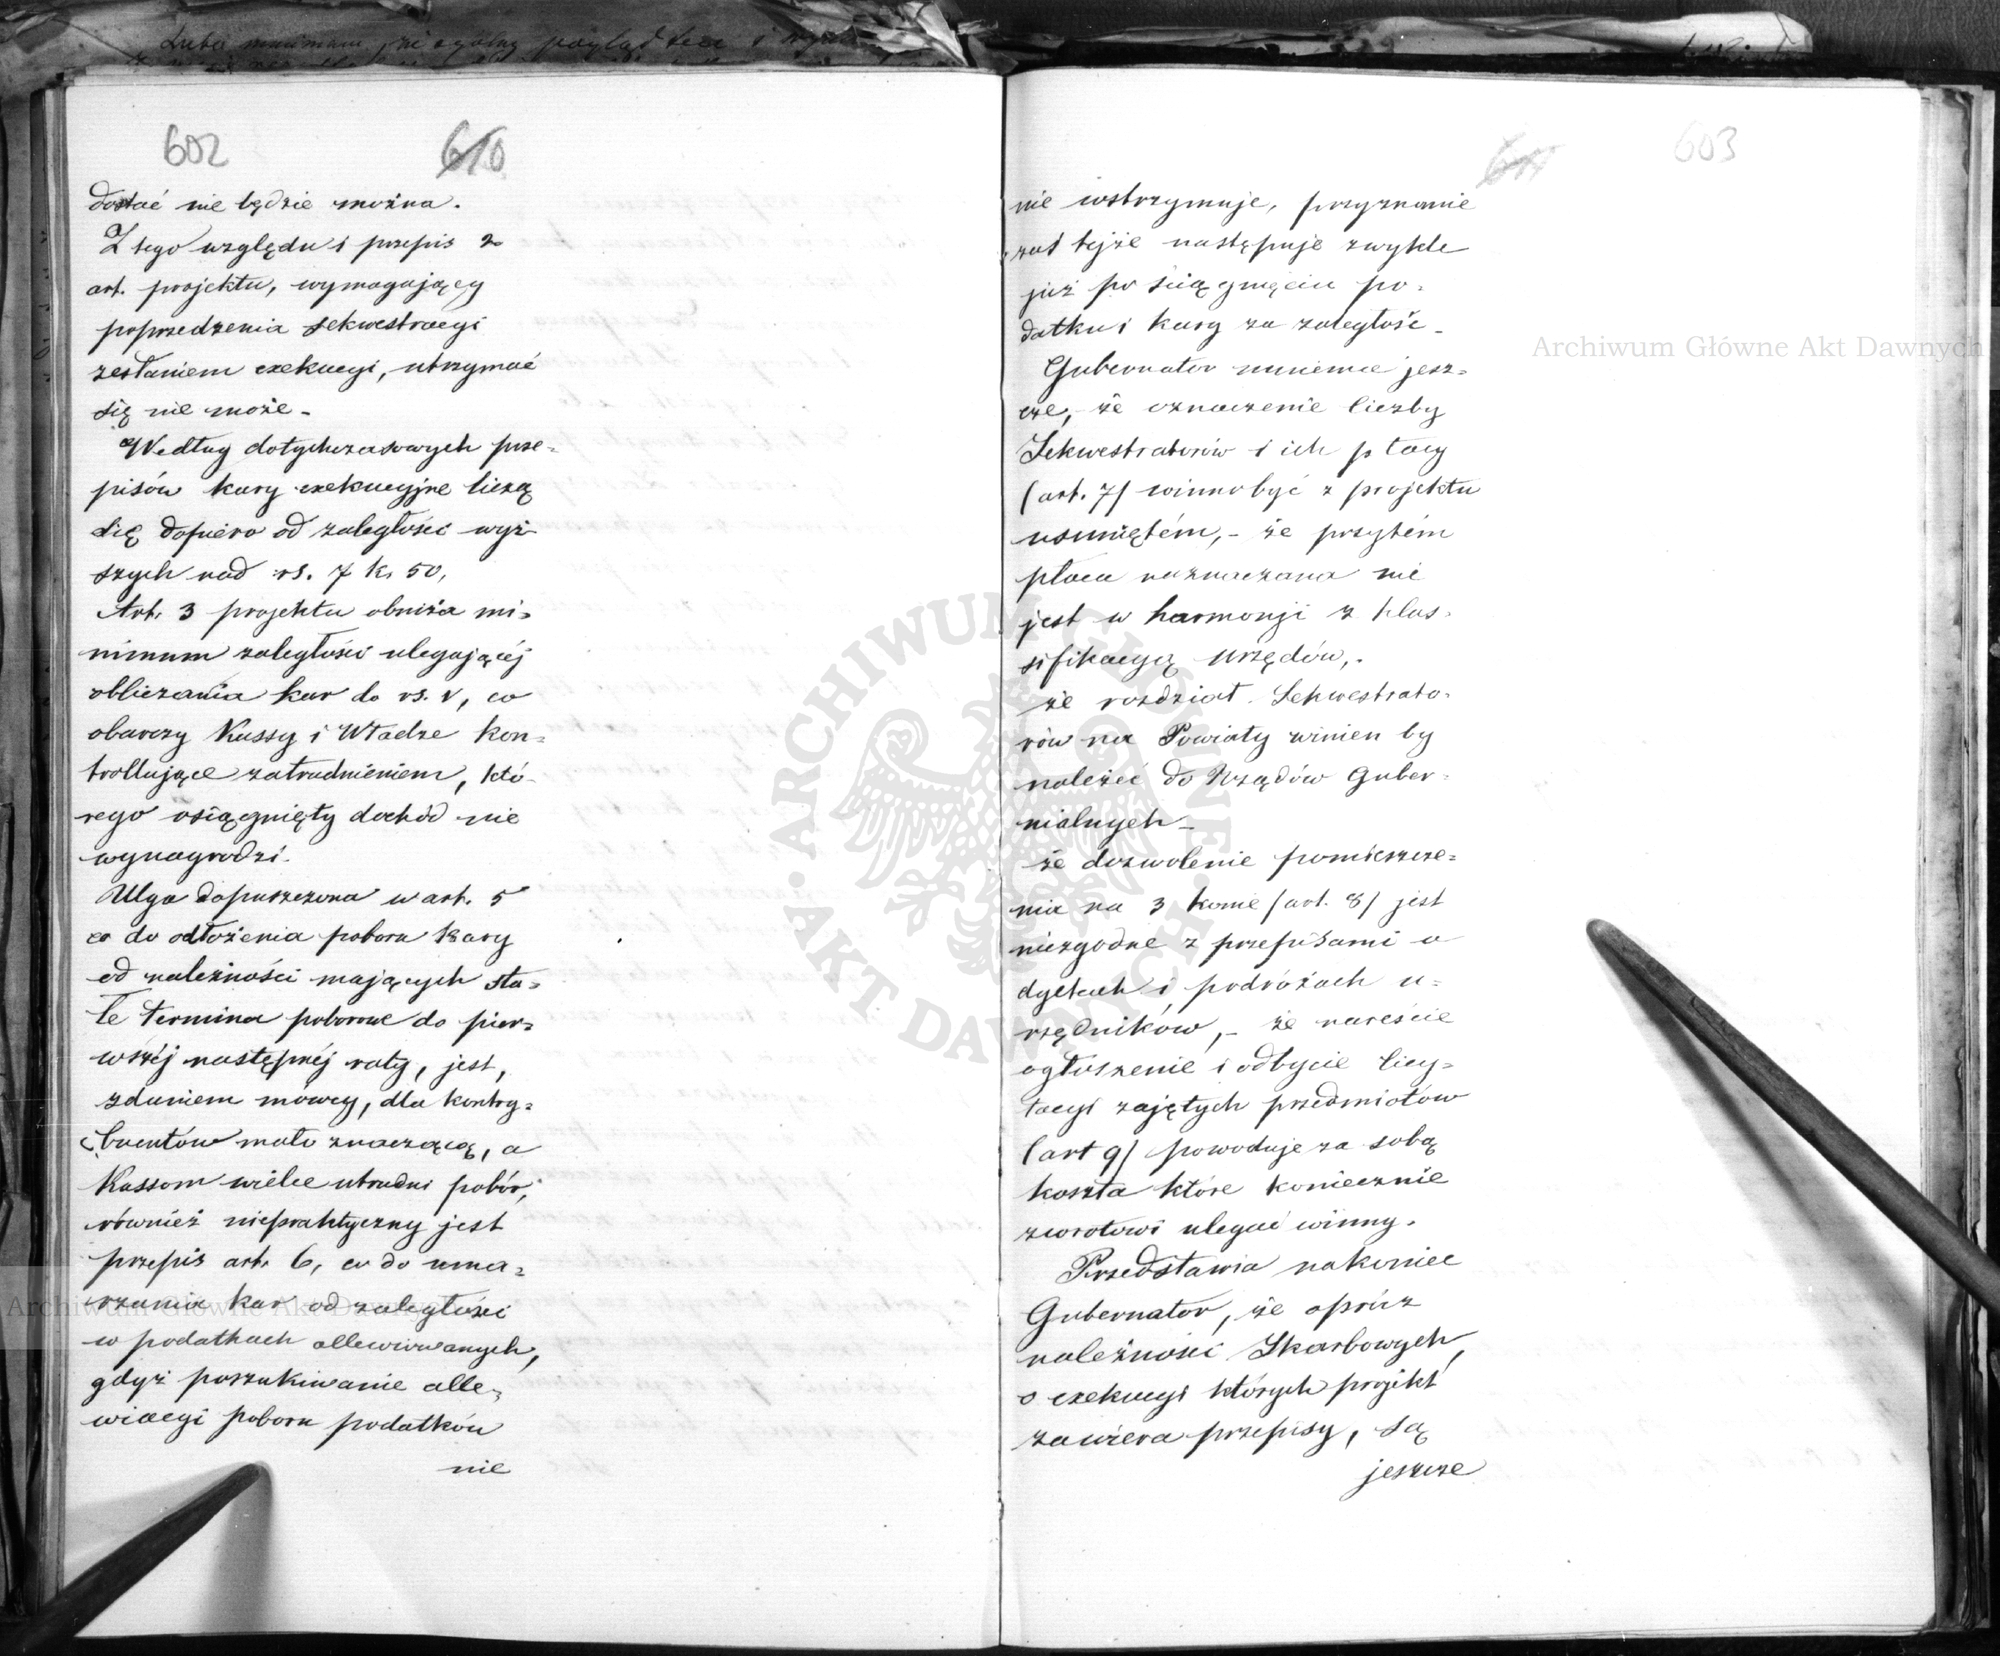 602 610
dostać nie będzie można.
Z tego względu i przepis 2
art. projektu, wymagający
poprzedzenia sekwestracyi
zesłaniem exekucyi, utrzymać
się nie może -
Według dotychczasowych prze-
pisów kary exekucyjne liczą
się dopiero od zaległości wyż
szych nad rs. 7 k. 50,
Art. 3 projektu obniża mi-
nimum zaległości ulegającéj
obliczania kar do rs. 1, co
obarczy Kassy i Władze kon-
trollujące zatrudnieniem, któ-
rego osiągnięty dochód nie
wynagrodzi.
Ulga dopuszczona w art. 5
co do odłożenia poboru kary
od należności mających sta-
łe termina poborowe do pier-
wszéj następnéj raty, jest,
zdaniem mówcy, dla kontry-
buentów mało znaczącą, a
Kassom wielce utrudni pobór,
również niepraktyczny jest
przepis art. 6, co do uma-
rzania kar od zaległości
w podatkach allewiowanych,
gdyż poszukiwanie alle-
wiacyi poboru podatków
nie
611 603
nie wstrzymuje, przyznanie
zaś tejże następuje zwykle
już po ściągnięciu po-
datku i kary za zaległość -
Gubernator mniema jesz-
cze, - że oznaczenie liczby
Sekwestratorów i ich płacy
(art. 7) winno być z projektu
usuniętém, - że przytém
płaca naznaczana nie
jest w harmonji z klas-
sifikacyą urzędów,.
że rozdział Sekwestrato-
rów na Powiaty winien by
należéć do Rządów Guber-
nialnych -
że dozwolenie pomieszcze-
nia na 3 konie (art. 8) jest
niezgodne z przepisami o
dyetach i podróżach u-
rzędników, - że nareście
ogłoszenie i odbycie licy-
tacyi zajętych przedmiotów
(art 9) powoduje za sobą
koszta które koniecznie
zwrotowi ulegać winny.
Przedstawia nakoniec
Gubernator, że oprócz
należności Skarbowych,
o exekucyi których projekt
zawiera przepisy, są
jeszcze
Archiwum Główne Akt Dawnych
Archiwum Główne Akt Dawnych
ARCHIWUM GŁÓWNE AKT DAWNYCH